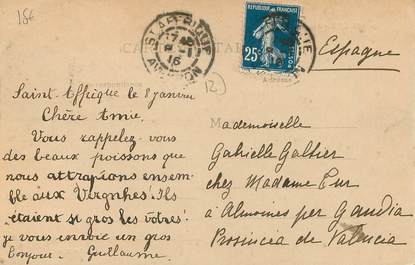 186
ST AFFRIQUE
17
8 - 1
16
AVEYRON
REPUBLIQUE FRANÇAISE
25c
POSTES
Espagne
12
Saint-Affrique le 8 janvier
Chère Amie.
Vous rappelez-vous
des beaux poissons que
nous attrapions ensem-
ble aux Vergnhes! Ils
étaient si gros les votres!
je vous envoie un gros
bonjour. Guillaume.
Mademoiselle
Gabrielle Galtier
chez Madame Cur
à Almoines per Gandia
Provincia de Valencia